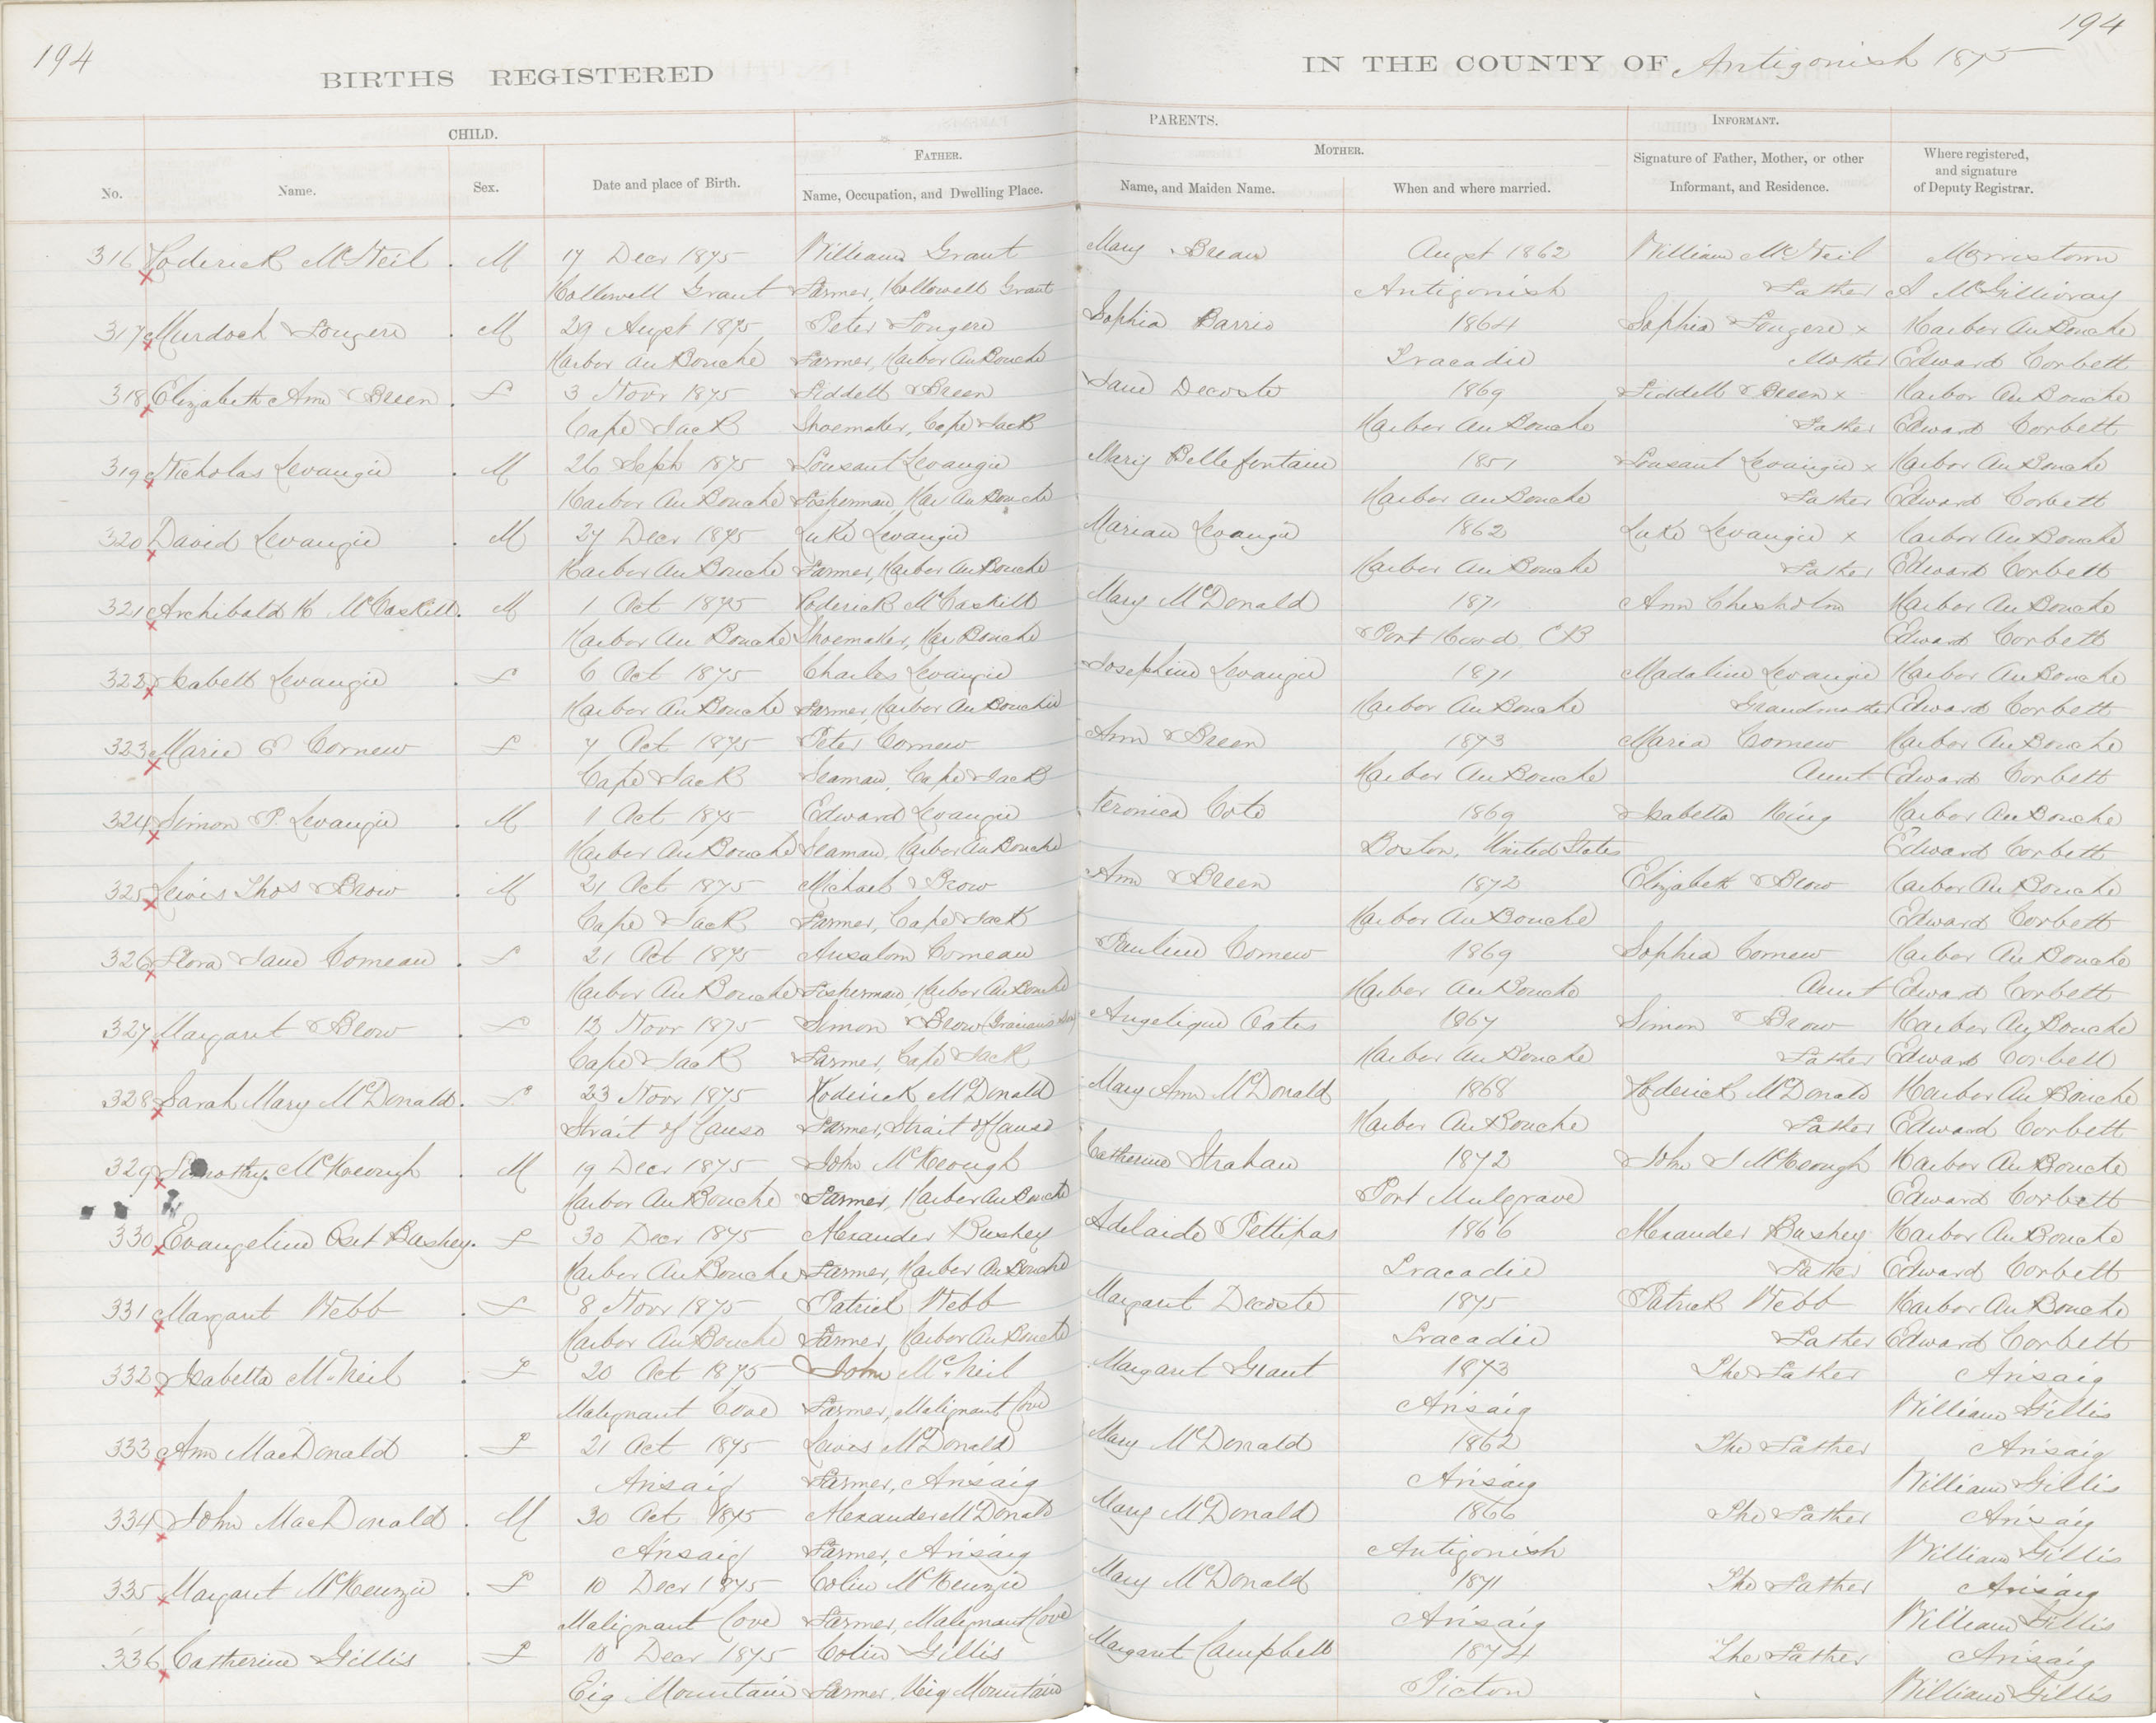 194
194
BIRTHS REGISTERED
IN THE COUNTY OF Antigonish 1875
CHILD.
PARENTS.
INFORMANT.
FATHER.
MOTHER.
No.
Name.
Sex.
Date and place of Birth.
Name, Occupation, and Dwelling Place.
Name, and Maiden Name.
When and where married.
Signature of Father, Mother, or other Informant, and Residence.
Where registered, and signature of Deputy Registrar.
316 Roderick McNeil . M 17 Decr 1875 William Grant Mary Augst 1862 William McNeil Morristown
Hollowell Grant Farmer, Hollowell Grant Antigonish Father A McGillivray
317 Murdoch Fougere . M 29 Augst 1875 Peter Fougere Sophia Barrio 1864 Sophia Fougere x Harbor Au Bouche
Harbor Au Bouche Farmer, Harbor Au Bouche Tracadie Mother Edward Corbett
318 Elizabeth Ann Breen . F 3 Novr 1875 Liddell Breen Jane Decoste 1869 Liddell Breen x Harbor Au Bouche
Cape Jack Shoemaker, Cape Jack Harbor Au Bouche Father Edward Corbett
319 Nicholas Levangie . M 26 Sept 1875 Levangie Mary Bellefontaine 1851 Levangie x Harbor Au Bouche
Harbor Au Bouche Fisherman, Har Au Bouche Harbor Au Bouche Father Edward Corbett
320 David Levangie . M 27 Decr 1875 Luke Levangie Marian Levangie 1862 Luke Levangie x Harbor Au Bouche
Harbor Au Bouche Farmer, Harbor Au Bouche Harbor Au Bouche Father Edward Corbett
321 Archibald H McCaskill . M 1 Oct 1875 Roderick McCaskill Mary McDonald 1871 Ann Chisholm Harbor Au Bouche
Harbor Au Bouche Shoemaker, Har Bouche Port Hood CB Edward Corbett
322 Isabell Levangie . F 6 Oct 1875 Charles Levangie Josephine Levangie 1871 Madaline Levangie Harbor Au Bouche
Harbor Au Bouche Farmer, Harbor Au Bouche Harbor Au Bouche Grandmother Edward Corbett
323 Marie E Cornew F 7 Oct 1875 Peter Cornew Ann Breen 1873 Maria Cornew Harbor Au Bouche
Cape Jack Seaman, Cape Jack Harbor Au Bouche Aunt Edward Corbett
324 Simon P. Levangie . M 1 Oct 1875 Edward Levangie Veronica Cote 1869 Isabella King Harbor Au Bouche
Harbor Au Bouche Seaman, Harbor Au Bouche Boston, United States Edward Corbett
325 Lewis Thos Brow . M 21 Oct 1875 Michael Brow Ann Breen 1872 Elizabeth Brow Harbor Au Bouche
Cape Jack Farmer, Cape Jack Harbor Au Bouche Edward Corbett
326 Flora Jane Comeau . F 21 Oct 1875 Ansalom Comeau Pauline Cornew 1869 Sophia Cornew Harbor Au Bouche
Harbor Au Bouche Fisherman, Harbor Au Bouche Harbor Au Bouche Aunt Edward Corbett
327 Margaret Brow . F 12 Novr 1875 Simon Brow Angelique Oates 1867 Simon Brow Harbor Au Bouche
Cape Jack Farmer, Cape Jack Harbor Au Bouche Father Edward Corbett
328 Sarah Mary McDonald . F 23 Novr 1875 Roderick McDonald Mary Ann McDonald 1868 Roderick McDonald Harbor Au Bouche
Strait of Canso Farmer, Strait of Canso Harbor Au Bouche Father Edward Corbett
329 Timothy McKeough . M 19 Decr 1875 John McKeough Catherine Strahan 1872 John J McKeough Harbor Au Bouche
Harbor Au Bouche Farmer, Harbor Au Bouche Port Mulgrave Edward Corbett
330 Evangeline Bushey . F 30 Decr 1875 Alexander Bushey Adelaide Pettipas 1866 Alexander Bushey Harbor Au Bouche
Harbor Au Bouche Farmer, Harbor Au Bouche Tracadie Father Edward Corbett
331 Margaret Webb . F 8 Novr 1875 Patrick Webb Margaret Decoste 1875 Patrick Webb Harbor Au Bouche
Harbor Au Bouche Farmer, Harbor Au Bouche Tracadie Father Edward Corbett
332 Isabella McNeil . F 20 Oct 1875 John McNeil Margaret Grant 1873 The Father Arisaig
Malignant Cove Farmer, Malignant Cove Arisaig William Gillis
333 Ann MacDonald . F 21 Oct 1875 Lewis McDonald Mary McDonald 1862 The Father Arisaig
Arisaig Farmer, Arisaig Arisaig William Gillis
334 John MacDonald . M 30 Oct 1875 Alexander McDonald Mary McDonald 1866 The Father Arisaig
Arisaig Farmer, Arisaig Antigonish William Gillis
335 Margaret McKenzie . F 10 Decr 1875 Colin McKenzie Mary McDonald 1871 The Father Arisaig
Malignant Cove Farmer, Malignant Cove Arisaig William Gillis
336 Catherine Gillis . F 10 Decr 1875 Colin Gillis Margaret Campbell 1874 The Father Arisaig
Eig Mountain Farmer, Mountain Picton William Gillis